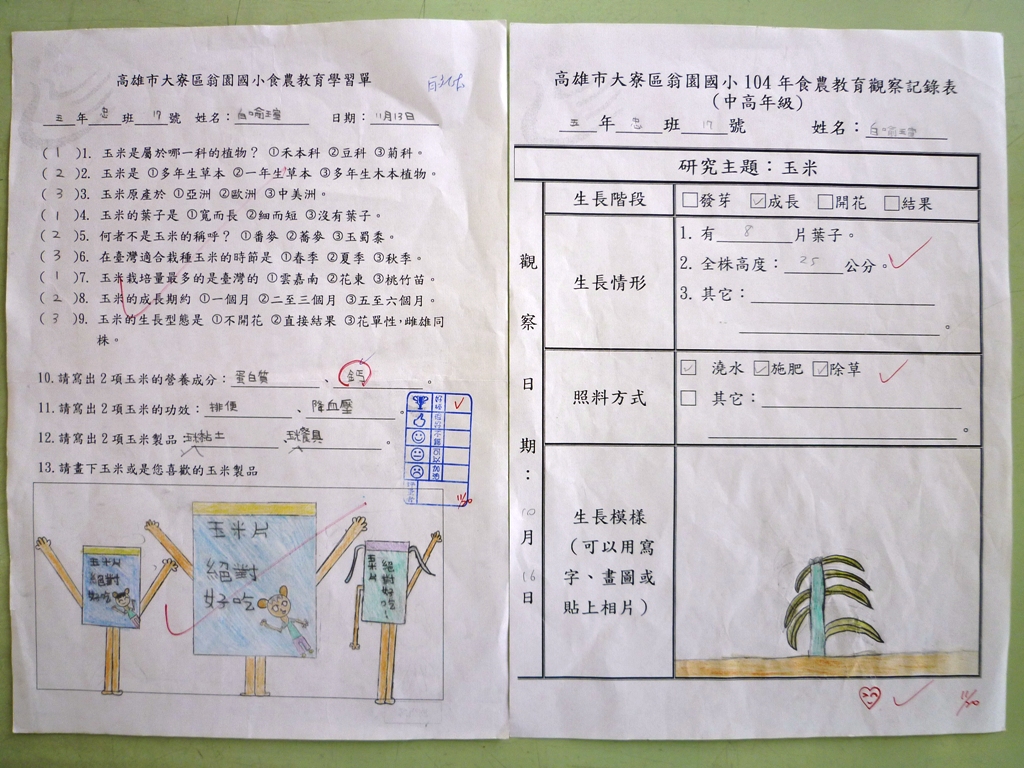 高雄市大寮區翁園國小食農教育學習單
五年忠班17號 姓名：白喻瑄 日期：11月13日
(1)1. 玉米是屬於哪一科的植物？ ①禾本科 ②豆科 ③菊科。
(2)2. 玉米是 ①多年生草本 ②一年生草本 ③多年生木本植物。
(3)3. 玉米原產於 ①亞洲 ②歐洲 ③中美洲。
(1)4. 玉米的葉子是 ①寬而長 ②細而短 ③沒有葉子。
(2)5. 何者不是玉米的稱呼？ ①番麥 ②蕎麥 ③玉蜀黍。
(3)6. 在臺灣適合栽種玉米的時節是 ①春季 ②夏季 ③秋季。
(1)7. 玉米栽培量最多的是臺灣的 ①雲嘉南 ②花東 ③桃竹苗。
(2)8. 玉米的成長期約 ①一個月 ②二至三個月 ③五至六個月。
(3)9. 玉米的生長型態是 ①不開花 ②直接結果 ③花單性,雌雄同
株。
10.請寫出2項玉米的營養成分：蛋白質、鈣。
11.請寫出2項玉米的功效：排便、降血壓。
12.請寫出2項玉米製品：玉米黏土、玉米餐具。
13.請畫下玉米或是您喜歡的玉米製品
玉米片
絕對
好吃
玉米片
絕對
好吃
玉米片
絕對好吃!
11/30
高雄市大寮區翁園國小104年食農教育觀察記錄表
（中高年級）
五年忠班17號 姓名：白喻瑄
研究主題：玉米
觀察日期：10月16日
生長階段 □發芽 ☑成長 □開花 □結果
生長情形
1. 有8片葉子。
2. 全株高度：25公分。
3. 其它：
。
照料方式
☑ 澆水 ☑施肥 ☑除草
□ 其它：
。
生長模樣
（可以用寫
字、畫圖或
貼上相片）
11/30